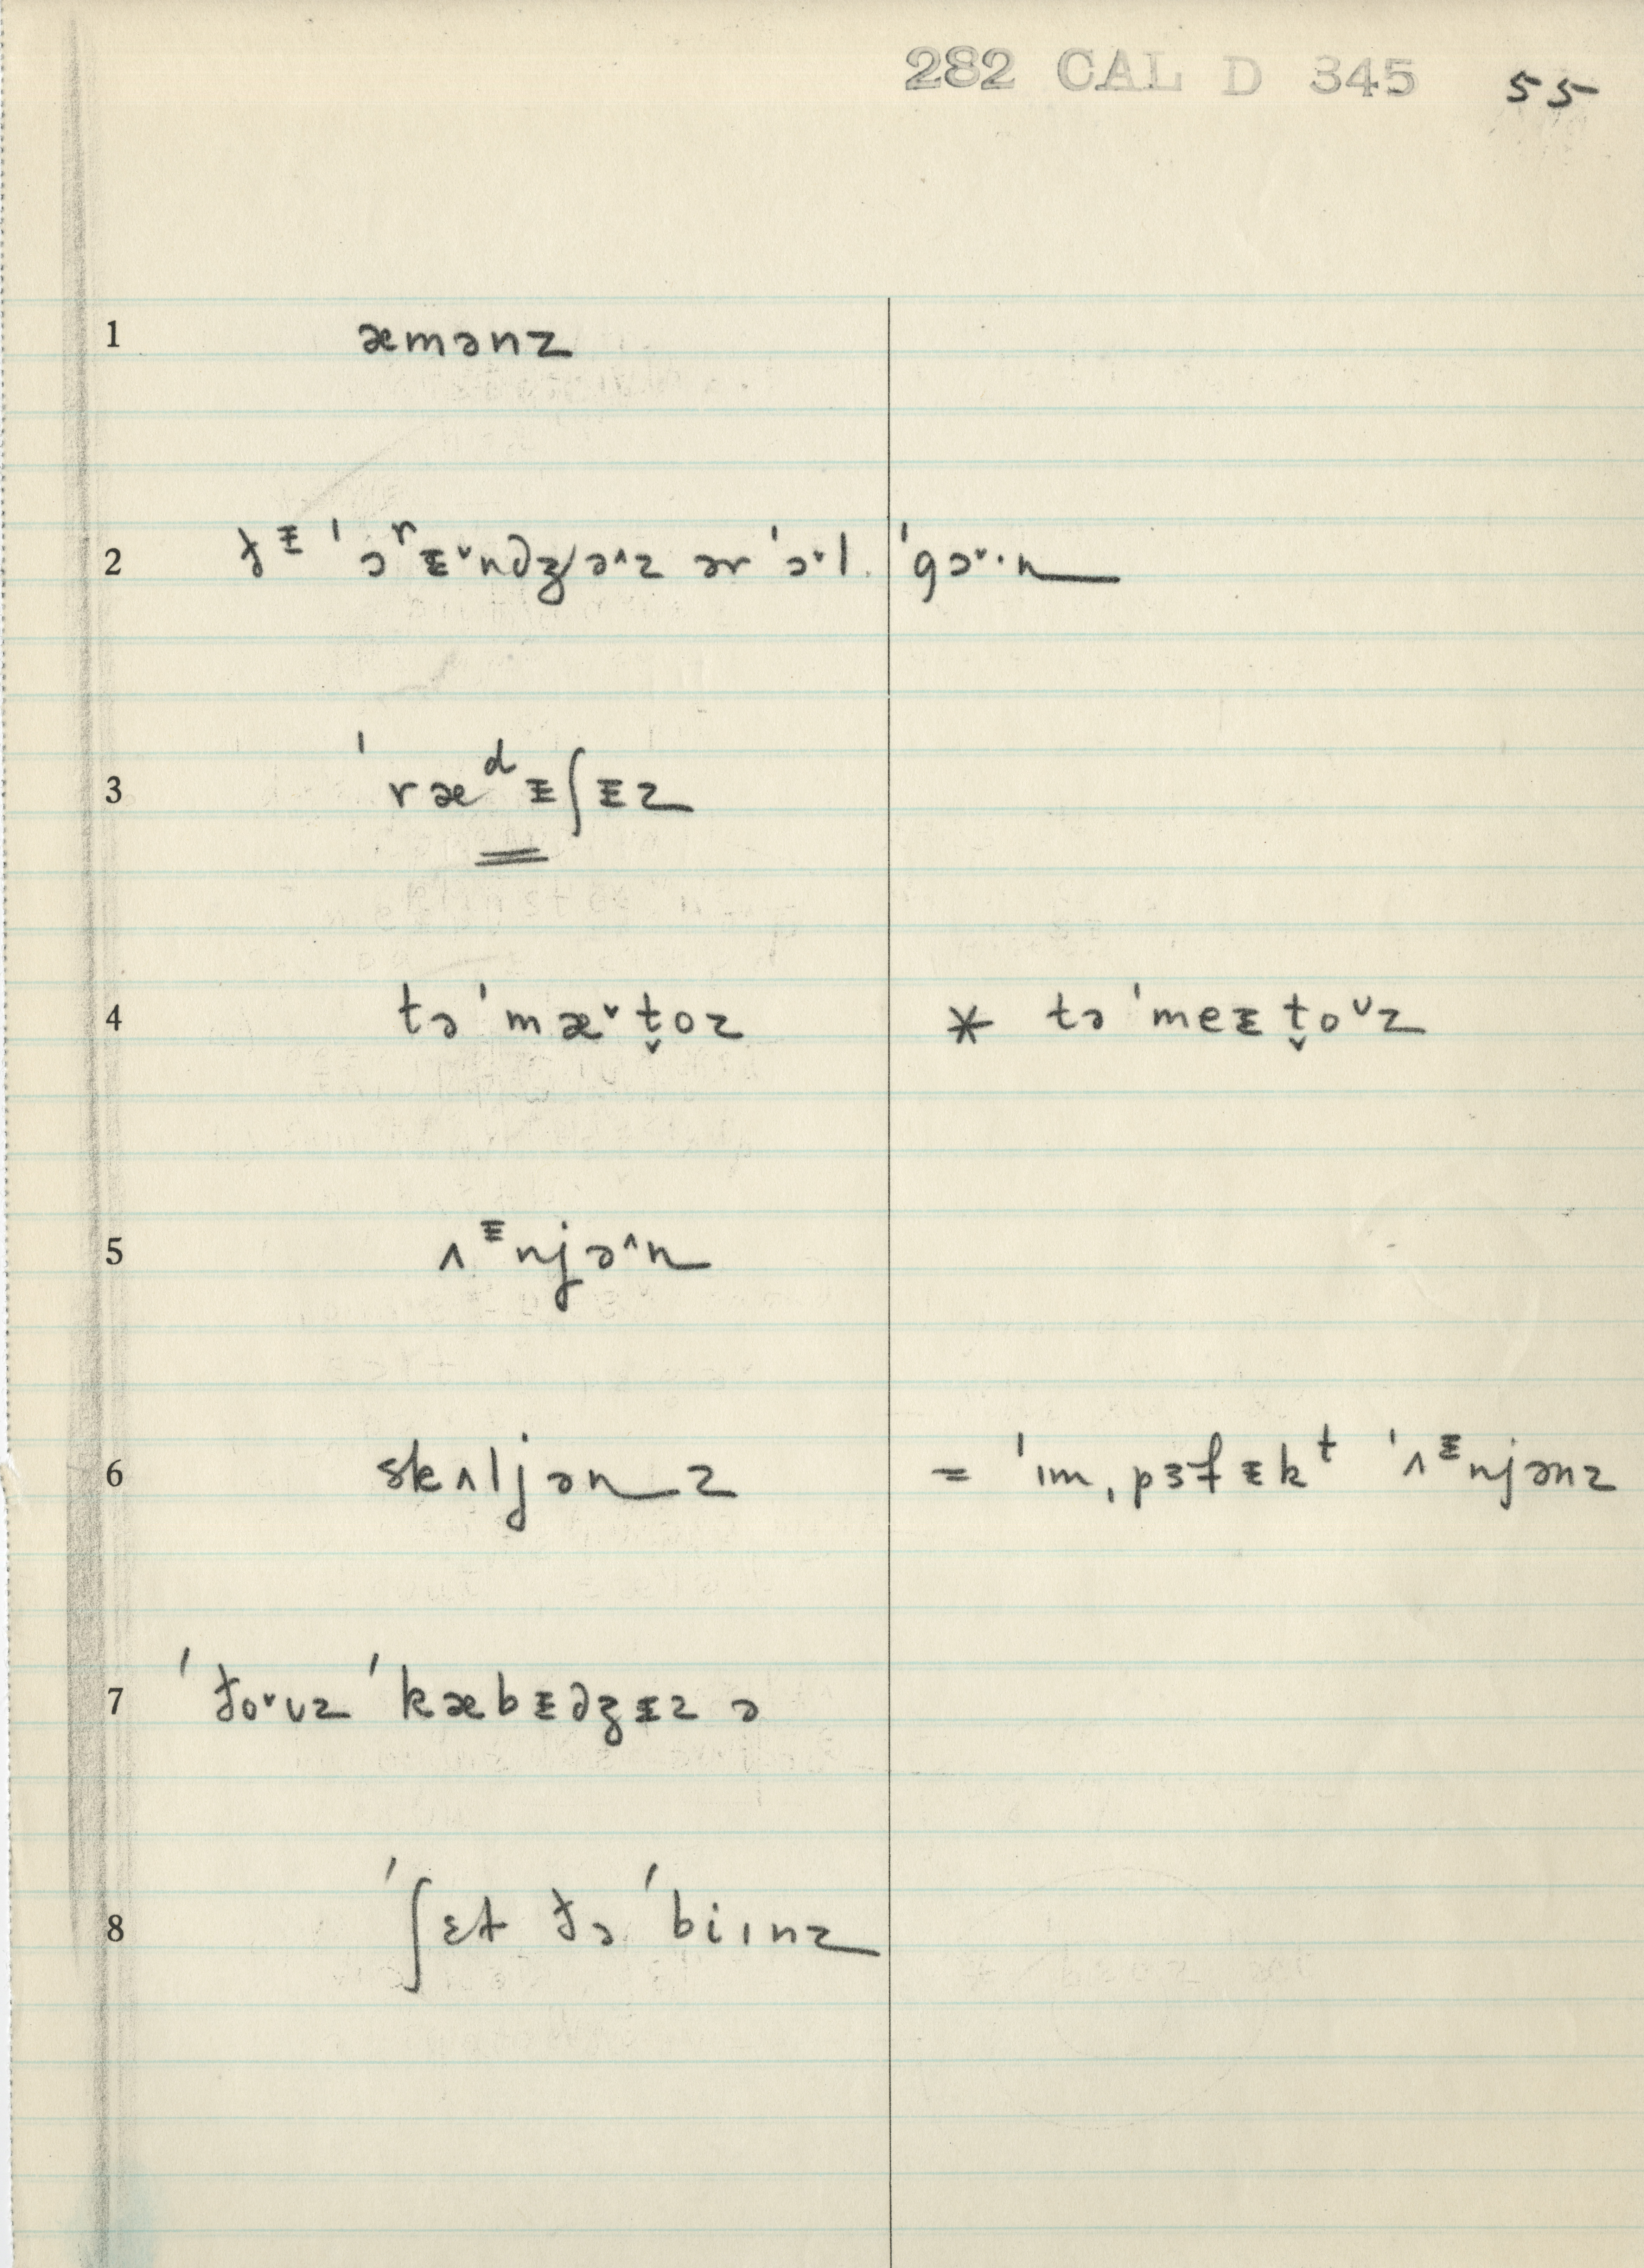 282 CAL D 345 55
1 æmənz
2 ðᵻ ˈɔʳᵻ˅ndʒə˄z ər ˈɔ˅l ˈgɔ˅·n
3 ˈræᵈᵻʃᵻz
4 təˈmæ˅t̬oz * təˈmeᵻt̬oᴜz
5 ʌᵻnjə˄n
6 skʌljənz = ˈɪmˌpɜfᵻkᵗ ˈʌᵻnjənz
7 ˈðo˅ᴜz ˈkæbᵻdʒᵻz ə
8 ˈʃɛt ðə ˈbiɪnz